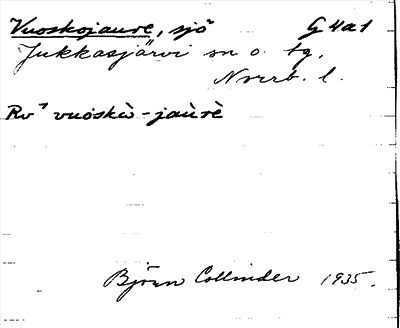 Vuoskojaure, sjö G 4a1
Jukkasjärvi sn o. tg.
Norrb. l.
Rv⁷ vuoskù-jaùrè
Björn Collinder 1935.